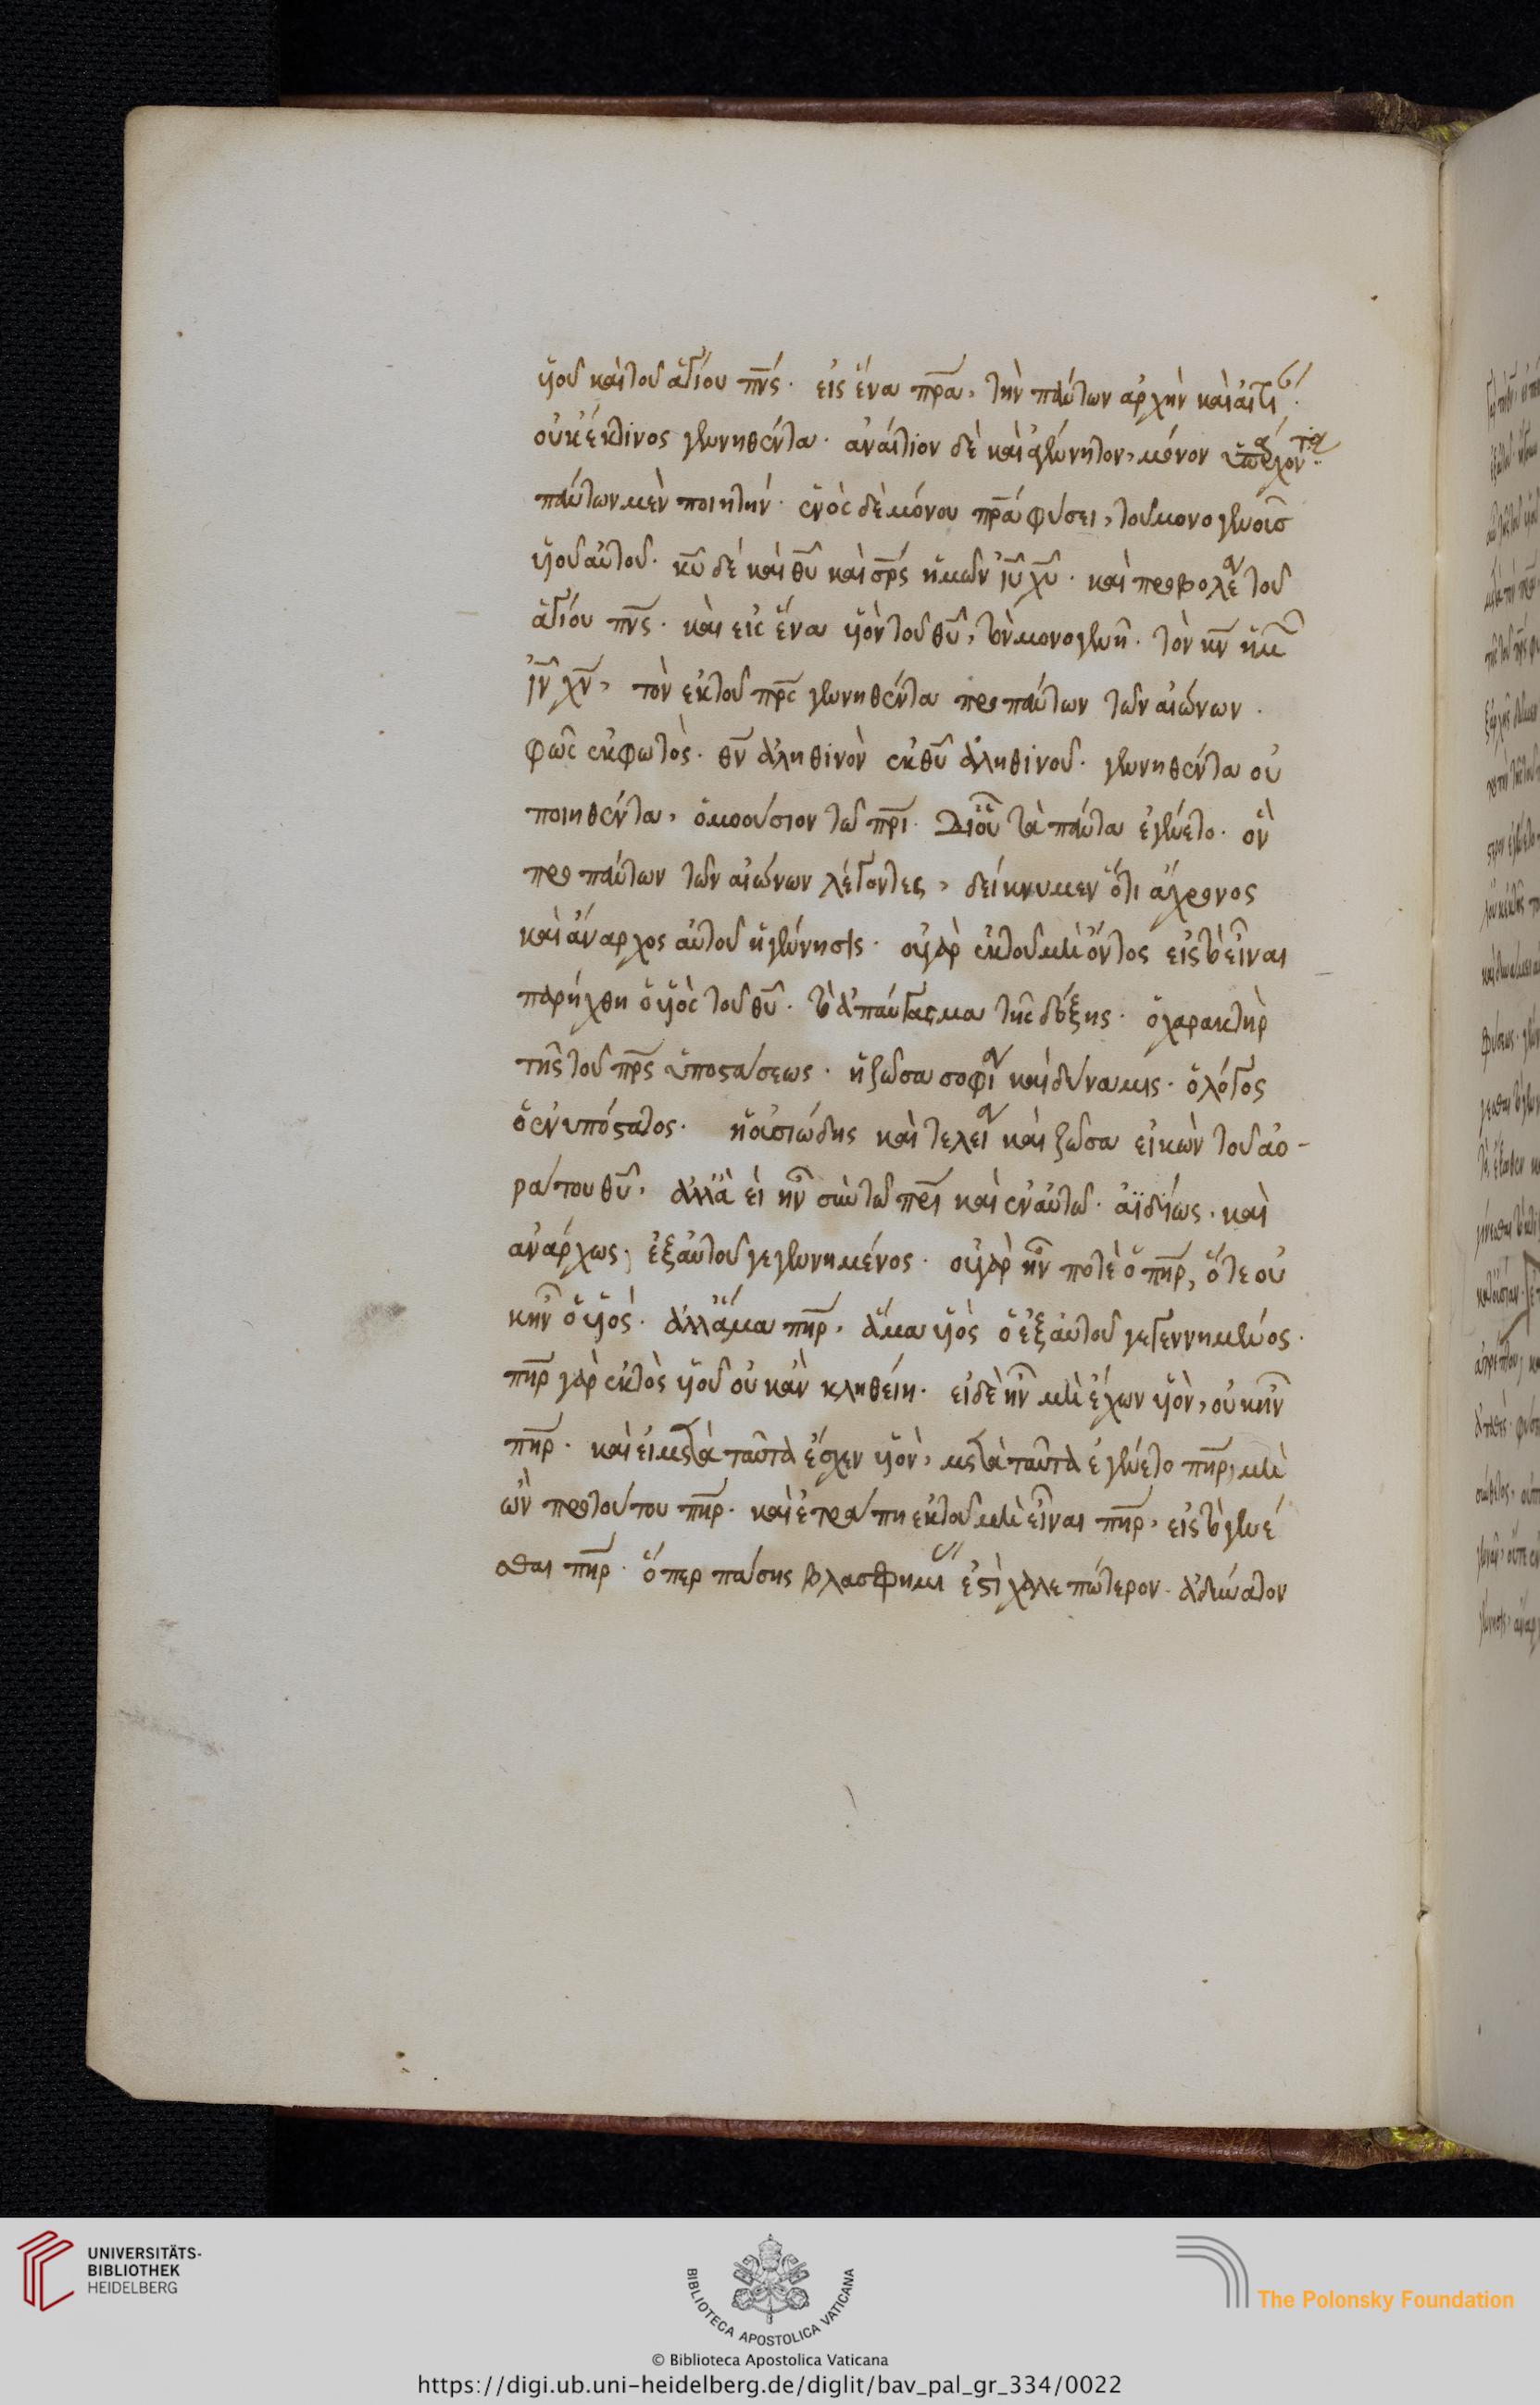 ϋἱοῦ καὶ τοῦ ἁγίου πν̅ς. εἰς ἕνα πρ̅α, τὴν πάντων ἀρχὴν καὶ αἰτί
οὐκ ἔκ τινος γεννηθέντα. ἀναίτιον δὲ καὶ ἀγέννητον, μόνον ὑπάρχοντα.
πάντων μὲν ποιητήν. ἑνὸς δὲ μόνου πρ̅α φύσει, τοῦ μονογενοῦς
υἱοῦ αὐτοῦ. κυ̅ δὲ καὶ θυ̅ καὶ σρ̅ς ἡμῶν ιυ̅ χυ̅. καὶ προβολέα τοῦ
ἁγίου πν̅ς. καὶ εἰς ἕνα υἱὸν τοῦ θυ̅, τὸν μονογενῆ. τὸν κν̅ ἡμ
ιν̅ χν̅, τὸν ἐκ τοῦ πρ̅ς γεννηθέντα πρὸ πάντων τῶν αἰώνων.
φῶς ἐκ φωτός. θν̅ ἀληθινὸν ἐκ θυ̅ ἀληθινοῦ. γεννηθέντα οὐ
ποιηθέντα, ὁμοούσιον τῶ πρι̅. δι' οὗ τὰ πάντα ἐγένετο. ὃν
πρὸ πάντων τῶν αἰώνων λέγοντες, δείκνυμεν ὅτι ἄχρονος
καὶ ἄναρχος αὐτοῦ ἡ γέννησις. οὐ γὰρ ἐκ τοῦ μὴ ὄντος εἰς τὸ εἶναι
παρήχθη ὁ υἱὸς τοῦ θυ̅. τὸ ἀπαύγασμα τῆς δόξης. ὁ χαρακτὴρ
τῆς τοῦ πρ̅ς ὑποστάσεως. ἡ ζῶσα σοφία καὶ δύναμις. ὁ λόγος
ὁ ἐνυπόστατος. ἡ οὐσιώδης καὶ τελεία καὶ ζῶσα εἰκὼν τοῦ ἀο-
ράτου θυ̅. ἀλλὰ εἰ ἦν σὺν τῶ πρι̅ καὶ ἐν αὐτῶ. ἀϊδίως. καὶ
ἀνάρχως, ἐξ αὐτοῦ γεγεννημένος. οὐ γὰρ ἦν ποτὲ ὁ πη̅ρ, ὅτε οὐ
κ ἦν ὁ υἱός. ἀλλ' ἅμα πη̅ρ. ἅμα υἱὸς ὁ ἐξ αὐτοῦ γεγεννημένος.
πη̅ρ γὰρ ἐκτὸς υἱοῦ οὐκ ἂν κληθείη. εἰ δὲ ἦν μὴ ἔχων υἱὸν, οὐκ ἦν
πη̅ρ. καὶ εἰ μετὰ ταῦτα ἔσχεν υἱὸν, μετὰ ταῦτα ἐγένετο πη̅ρ, μὴ
ὢν πρὸ τούτου πη̅ρ. καὶ ἐτράπη ἐκ τοῦ μὴ εἶναι πη̅ρ, εἰς τὸ γενέ
σθαι πη̅ρ. ὅπερ πάσης βλασφημίας ἐστὶ χαλεπώτερον. ἀδύνατον
UNIVERSITÄTS-
BIBLIOTHEK
HEIDELBERG
BIBLIOTECA APOSTOLICA VATICANA
The Polonsky Foundation
© Biblioteca Apostolica Vaticana
https://digi.ub.uni-heidelberg.de/diglit/bav_pal_gr_334/0022